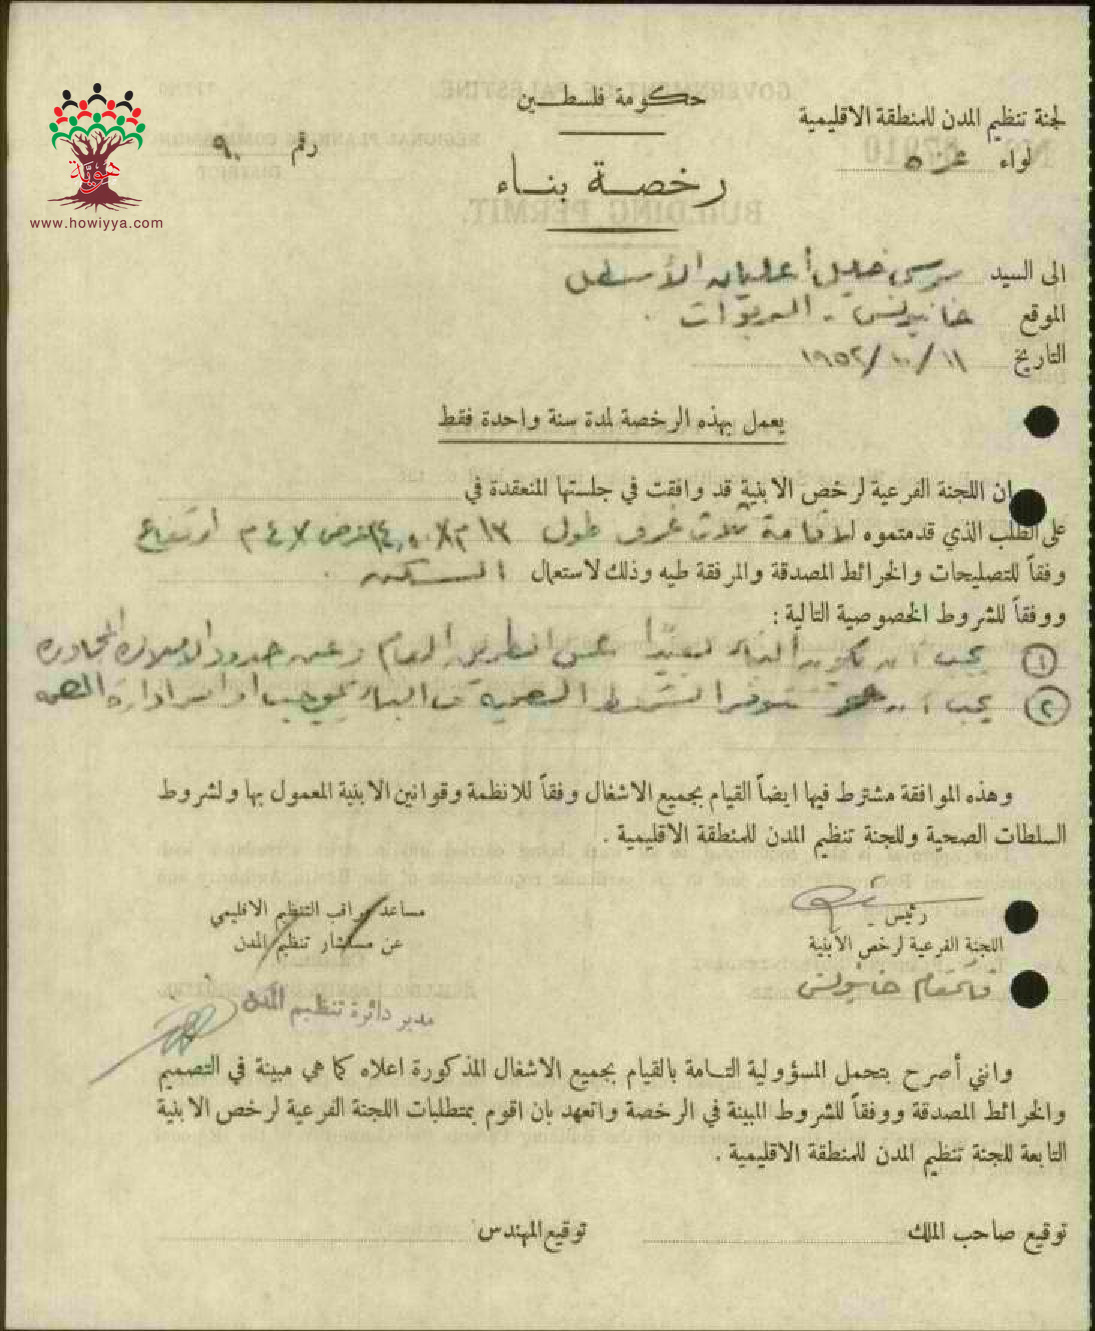 حكومة فلسطين
لجنة تنظيم المدن للمنطقة الاقليمية
لواء غزه
رقم ٩٠
رخصة بناء
هوية
www.howiyya.com
الى السيد موسى خليل عليان الأسطل
الموقع خانيونس - السريوات
التاريخ ١١/١٠/١٩٥٢
يعمل بهذه الرخصة لمدة سنة واحدة فقط
ان اللجنة الفرعية لرخص الابنية قد وافقت في جلستها المنعقدة في
على الطلب الذي قدمتموه لاقامة ثلاث غرف طول عرض ارتفاع
وفقاً للتصليحات والخرائط المصدقة والمرفقة طيه وذلك لاستعمال السكن
ووفقاً للشروط الخصوصية التالية :
١ يجب ان يكون البناء بعيدا عن الطريق العام وعن حدود الاملاك المجاورة
٢ يجب ان تتوفر الشروط الصحية في البناء بموجب اوامر ادارة الصحة
وهذه الموافقة مشترط فيها ايضاً القيام بجميع الاشغال وفقاً للانظمة وقوانين الابنية المعمول بها ولشروط
السلطات الصحية وللجنة تنظيم المدن للمنطقة الاقليمية .
رئيس
مساعد مراقب التنظيم الاقليمي
اللجنة الفرعية لرخص الأبنية
عن مستشار تنظيم المدن
قائمقام خانيونس
مدير دائرة تنظيم المدن
وانني أصرح بتحمل المسؤولية التامة بالقيام بجميع الاشغال المذكورة اعلاه كما هي مبينة في التصميم
والخرائط المصدقة ووفقاً للشروط المبينة في الرخصة واتعهد بان اقوم بمتطلبات اللجنة الفرعية لرخص الابنية
التابعة للجنة تنظيم المدن للمنطقة الاقليمية .
توقيع صاحب الملك
توقيع المهندس